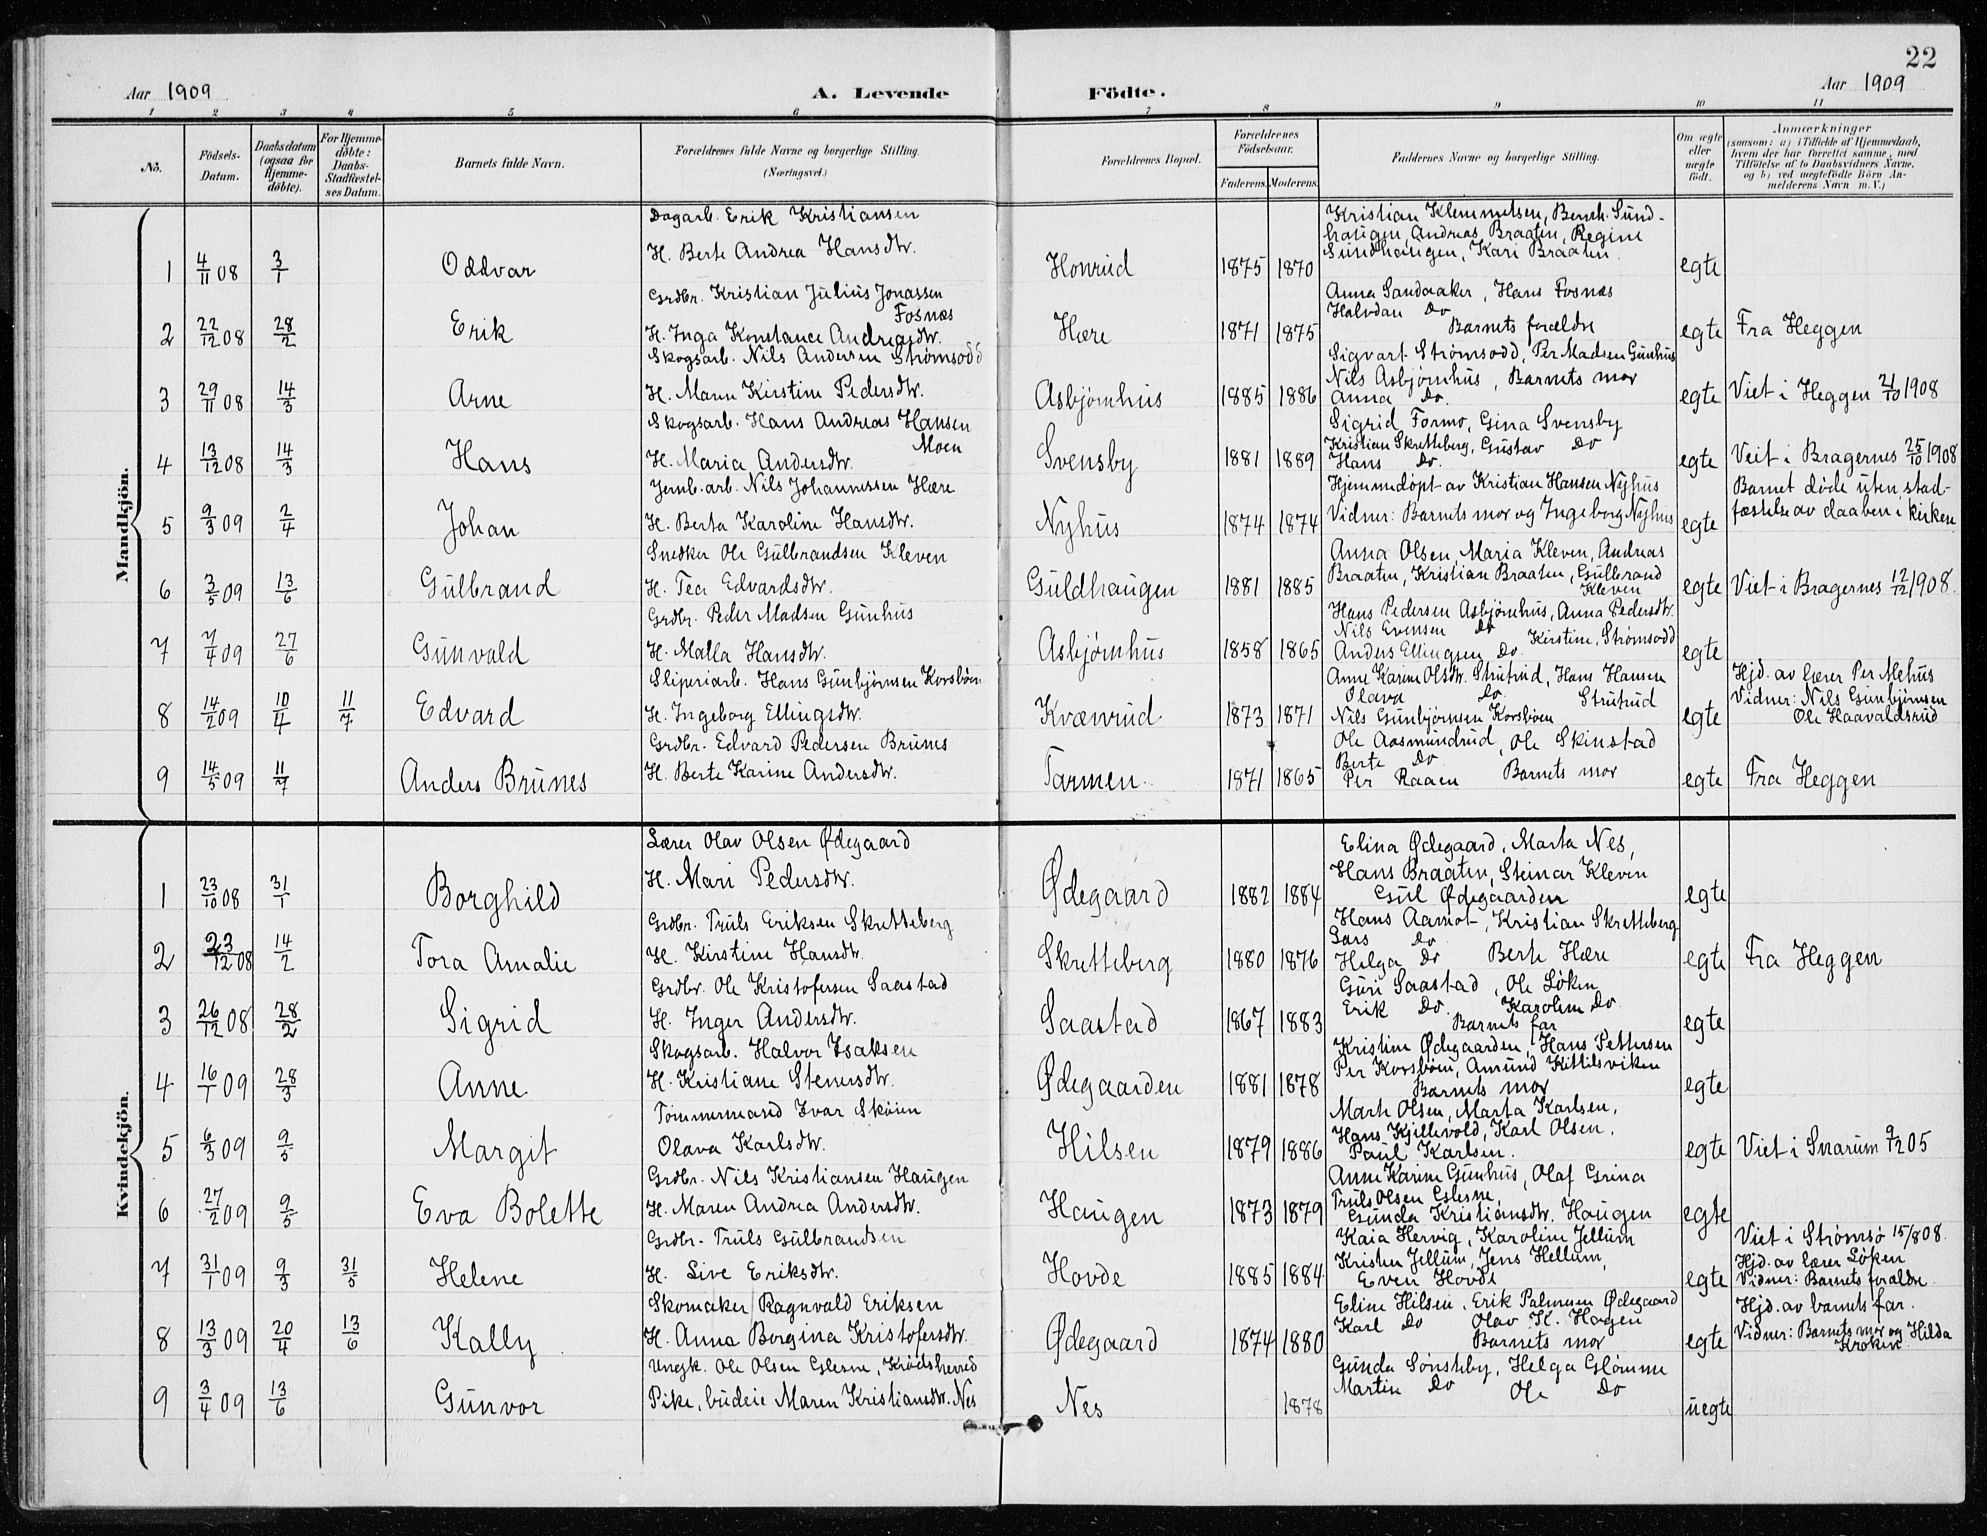 22
Aar 1909 A. Levende Födte. Aar 1909
1 2 3 4 5 6 7 8 9 10 11
No. Födsels-Datum. Daabsdatum (ogsaa for Hjemmedöbte). For Hjemmedöbte: Daabs-Stadfæstelses Datum. Barnets fulde Navn. Forældrenes fulde Navne og borgerlige Stilling. (Næringsvei.) Forældrenes Bopæl. Forældrenes Födselsaar. Faderens. Moderens. Faddernes Navne og borgerlige Stilling. Om ægte eller uægte födt. Anmærkninger (saasom: a) i Tilfælde af Hjemmedaab, hvem der har forrettet samme, med Tilföielse af to Daabsvidners Navne, og b) ved uægtefödte Börn Anmelderens Navn m. V.)
Mandkjön.
Dagarb. Erik Kristiansen Kristian Klemmetsen, Bernh. Sund-
haugen, Andreas Braaten, Regine
1 4/11 08 3/1 Oddvar H. Berte Andrea Hansdtr. Honrud 1875 1870 Sundhaugen, Kari Braaten. egte
Grdbr. Kristian Julius Jonassen Fosnæs Anna Sandaaker, Hans Fosnæs
Halvdan Do
2 22/12 08 28/2 Erik H. Inga Konstance Andreasdtr. Hære 1871 1875 Barnets forældre egte Fra Heggen
Skogsarb. Nils Andersen Strømsodd Sigvart Strømsodd, Per Madsen Gunhus
Nils Asbjørnhus, Barnets mor
3 29/11 08 14/3 Arne H. Maren Kirstine Pedersdtr. Asbjørnhus 1885 1886 Anna Do. egte Viet i Heggen 21/10 1908
Skogsarb. Hans Andreas Hansen Moen Sigrid Formo, Gina Svensby
Kristian Skretteberg, Gustav Do
4 13/12 08 14/3 Hans H. Maria Andersdtr. Svensby 1881 1889 Hans Do. egte Veit i Bragernes 25/10 1908
Jernb.arb. Nils Johannessen Hære Hjemmedøpt av Kristian Hansen Nyhus Barnet døde uten stad-
5 9/3 09 2/4 Johan H. Berta Karoline Hansdtr. Nyhus 1874 1874 Vidner: Barnets mor og Ingeborg Nyhus egte fæstelse av daaben i kirken
Snedker Ole Gulbrandsen Kleven Anna Olsen, Maria Kleven, Andreas
6 3/5 09 13/6 Gulbrand H. Tea Edvardsdtr. Guldhaugen 1881 1885 Braaten, Kristian Braaten, Gulbrand Kleven egte Viet i Bragernes 12/12 1908.
Grdbr. Peder Madsen Gunhus Hans Pedersen Asbjørnhus, Anna Pedersdtr.
Nils Evensen Do Kirstine Strømsodd
7 7/4 09 27/6 Gunvald H. Malla Hansdtr. Asbjørnhus 1858 1865 Anders Ellingsen Do egte
Sliperiarb. Hans Gunbjørnsen Korsbøen Anne Karine Olsdtr. Strutrud, Hans Hansen Hjd. av lærer Per Mehus
Olava Do Strutrud Vidner: Nils Gunbjørnsen
8 14/2 09 10/4 11/7 Edvard H. Ingeborg Ellingsdtr. Kvænrud 1873 1871 Nils Gunbjørnsen Korsbøen egte Ole Haavaldsrud
Grdbr. Edvard Pedersen Brunes Ole Aasmundrud, Ole Skinstad
Berte Do
9 14/5 09 11/7 Anders Brunes H. Berte Karine Andersdtr. Tarmen 1871 1865 Per Raaen Barnets mor egte Fra Heggen
Kvindekjön.
Lærer Olav Olsen Ødegaard Elina Ødegaard, Marta Nes,
Hans Braaten, Steinar Kleven
1 23/10 08 31/1 Borghild H. Mari Pedersdtr. Ødegaard 1882 1884 Gul Ødegaarden egte
Grdbr. Truls Eriksen Skretteberg Hans Aamot, Kristian Skretteberg
Lars Do
2 23/12 08 14/2 Tora Amalie H. Kirstine Hansdtr. Skretteberg 1880 1876 Helga Do Berte Hære egte Fra Heggen
Grdbr. Ole Kristofersen Saastad Guri Saastad, Ole Løken
Erik Do. Karoline Do.
3 26/12 08 28/2 Sigrid H. Inger Andersdtr. Saastad 1867 1883 Barnets far egte
Skogsarb. Halvor Isaksen Kristine Ødegaarden, Hans Pettersen
Per Korsbøen, Amund Kittilsviken
4 16/1 09 28/3 Anne H. Kristiane Stenersdtr. Ødegaarden 1881 1878 Barnets mor egte
Tømmermand Ivar Skøien Marte Olsen, Marta Karlsen,
Hans Kjillevold, Karl Olsen,
5 6/3 09 9/5 Margit Olava Karlsdtr. Hilsen 1879 1886 Paul Karlsen. egte Viet i Snarum 9/12 05
Grdbr. Nils Kristiansen Haugen Anne Karine Gunhus, Olaf Grina
Truls Olsen Eslesne,
6 27/2 09 9/5 Eva Bolette H. Maren Andrea Andersdtr. Haugen 1873 1879 Gunda Kristiansdtr. Haugen egte
Grdbr. Truls Gulbrandsen Kaia Hervig, Karoline Jellum Viet i Strømsø 15/8 08.
Kristen Jellum, Jens Hellum, Hjd. av lærer Løken
7 31/1 09 9/3 31/5 Helene H. Live Eriksdtr. Hovde 1885 1884 Even Hovde egte Vidner: Barnets forældre.
Skomaker Ragnvald Eriksen Eline Hilsen, Erik Palmesen Ødegaard Hjd. av barnets far.
Karl Do Olav K. Hagen Vidner: Barnets mor og Hilda
8 13/3 09 20/4 13/6 Kally H. Anna Borgina Kristofersdtr. Ødegaard 1874 1880 Barnets mor egte Kroken
Ungk. Ole Olsen Eslesne, Krødsherred Gunda Sønsteby, Helga Glømme
9 3/4 09 13/6 Gunvor Pike, budeie Maren Kristiansdtr. Nes Nes 1878 Martin Do Ole Do uegte